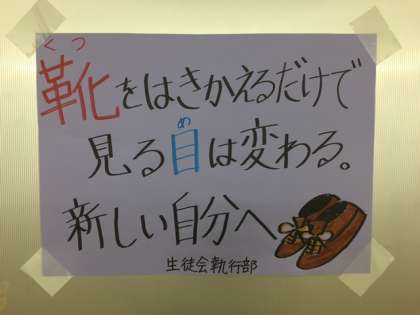 くつ
靴をはきかえるだけで
め
見る目は変わる。
新しい自分へ
生徒会執行部